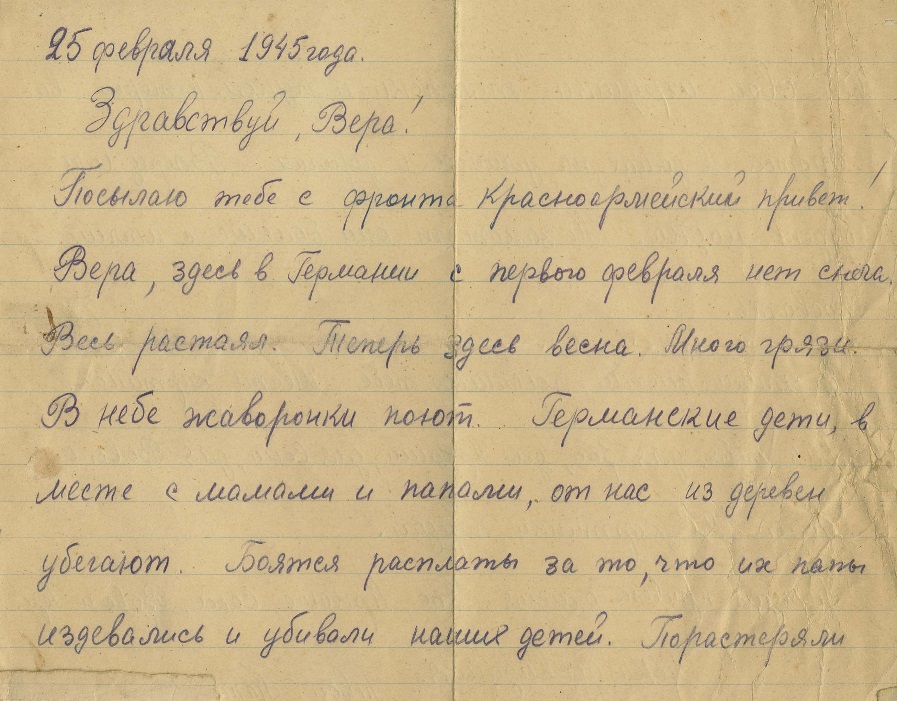 25 февраля 1945 года.
Здравствуй, Вера!
Посылаю тебе с фронта Красноармейский привет!
Вера, здесь в Германии с первого февраля нет снега.
Весь растаял. Теперь здесь весна. Много грязи.
В небе жаворонки поют. Германские дети, в
месте с мамами и папами, от нас из деревен
убегают. Боятся расплаты за то, что их папы
издевались и убивали наших детей. Порастеряли